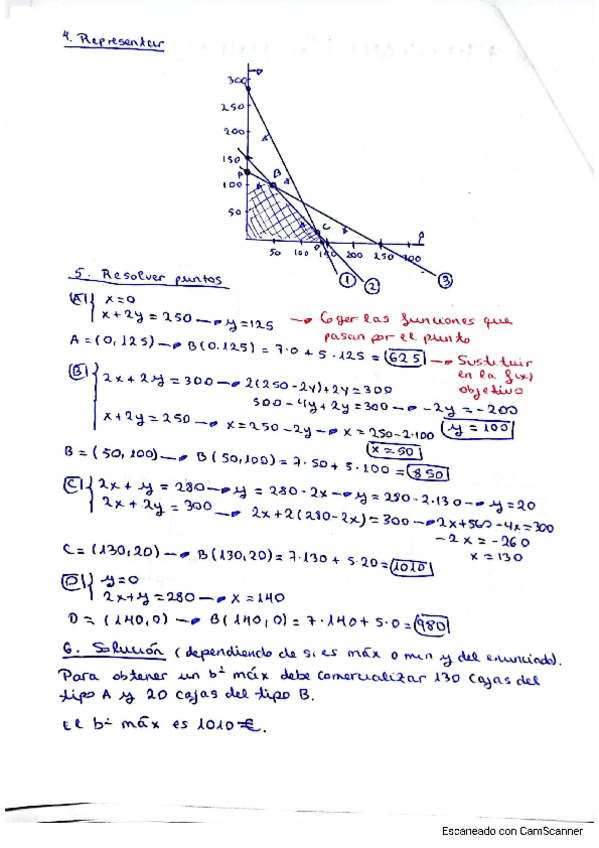 4. Representar
300
250
200
150
100
50
A
B
C
D
50 100 150 200 250 300
1 2 3
5. Resolver puntos
A) { x=0
x + 2y = 250 → y = 125
→ Coger las funciones que
pasan por el punto
A = (0, 125) → B(0,125) = 7·0 + 5·125 = 625
→ Sustituir
en la f(x)
objetivo
B) { 2x + 2y = 300 → 2(250-2y)+2y = 300
500 - 4y + 2y = 300 → -2y = -200
x + 2y = 250 → x = 250 - 2y → x = 250-2·100
y = 100
x = 50
B = (50, 100) → B(50,100) = 7·50 + 5·100 = 850
C) { 2x + y = 280 → y = 280 - 2x → y = 280 - 2·130 → y = 20
2x + 2y = 300 → 2x + 2(280-2x) = 300 → 2x+560-4x=300
-2x = -260
x = 130
C = (130, 20) → B(130,20) = 7·130 + 5·20 = 1010
D) { y = 0
2x+y = 280 → x = 140
D = (140, 0) → B(140, 0) = 7·140 + 5·0 = 980
6. Solución (dependiendo de si es máx o min y del enunciado).
Para obtener un bº máx debe comercializar 130 cajas del
tipo A y 20 cajas del tipo B.
El bº máx es 1010€.
Escaneado con CamScanner